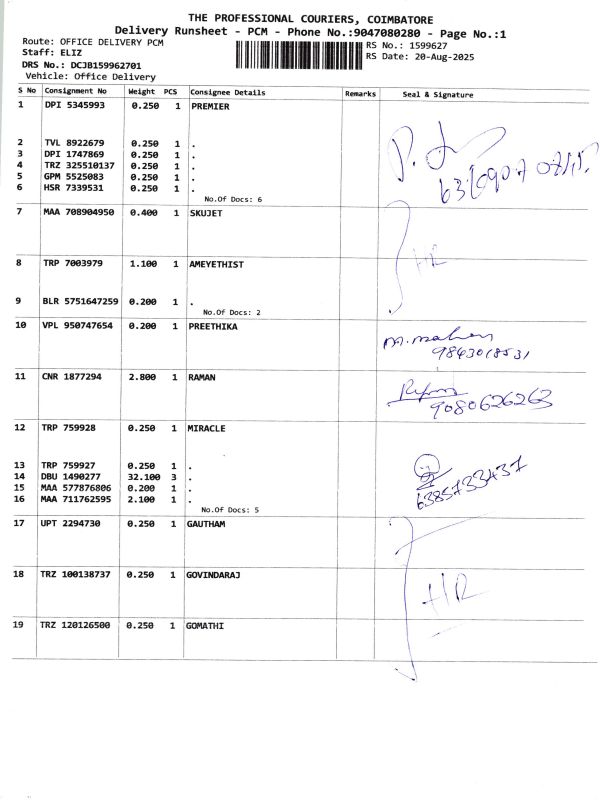 THE PROFESSIONAL COURIERS, COIMBATORE
Delivery Runsheet - PCM - Phone No.:9047080280 - Page No.:1
Route: OFFICE DELIVERY PCM
RS No.: 1599627
Staff: ELIZ
RS Date: 20-Aug-2025
DRS No.: DCJB159962701
Vehicle: Office Delivery
S No Consignment No Weight PCS Consignee Details Remarks Seal & Signature
1 DPI 5345993 0.250 1 PREMIER
2 TVL 8922679 0.250 1 .
3 DPI 1747869 0.250 1 .
4 TRZ 325510137 0.250 1 .
5 GPM 5525083 0.250 1 .
6 HSR 7339531 0.250 1 .
No.Of Docs: 6
7 MAA 708904950 0.400 1 SKUJET
8 TRP 7003979 1.100 1 AMEYETHIST
HR
9 BLR 5751647259 0.200 1 .
No.Of Docs: 2
10 VPL 950747654 0.200 1 PREETHIKA
9843018531
11 CNR 1877294 2.800 1 RAMAN
9080626263
12 TRP 759928 0.250 1 MIRACLE
13 TRP 759927 0.250 1 .
14 DBU 1490277 32.100 3 .
15 MAA 577876806 0.200 1 .
16 MAA 711762595 2.100 1 .
6385733437
No.Of Docs: 5
17 UPT 2294730 0.250 1 GAUTHAM
18 TRZ 100138737 0.250 1 GOVINDARAJ
HR
19 TRZ 120126500 0.250 1 GOMATHI